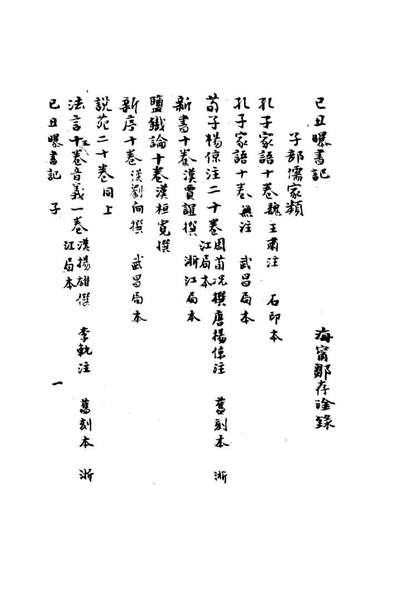 己丑曝書記 海甯鄒存淦錄
子部儒家類
孔子家語十卷魏王肅注 石印本
孔子家語十卷無注 武昌局本
荀子楊倞注二十卷周荀況撰唐楊倞注 舊刻本 浙
江局本
新書十卷漢賈誼撰 浙江局本
鹽鐵論十卷漢桓寬撰
新序十卷漢劉向撰 武昌局本
說苑二十卷同上
法言十三卷音義一卷漢揚雄撰 李軌注 舊刻本 浙
江局本
己丑曝書記 子 一